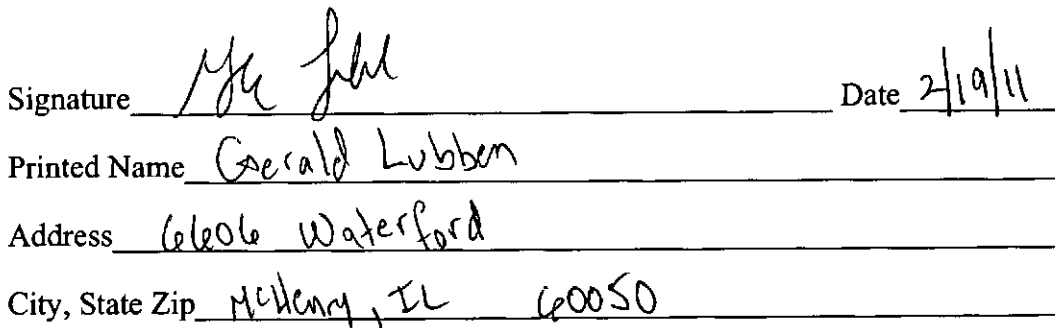 Signature Date 2/19/11
Printed Name Gerald Lubben
Address 6606 Waterford
City, State Zip McHenry, IL 60050